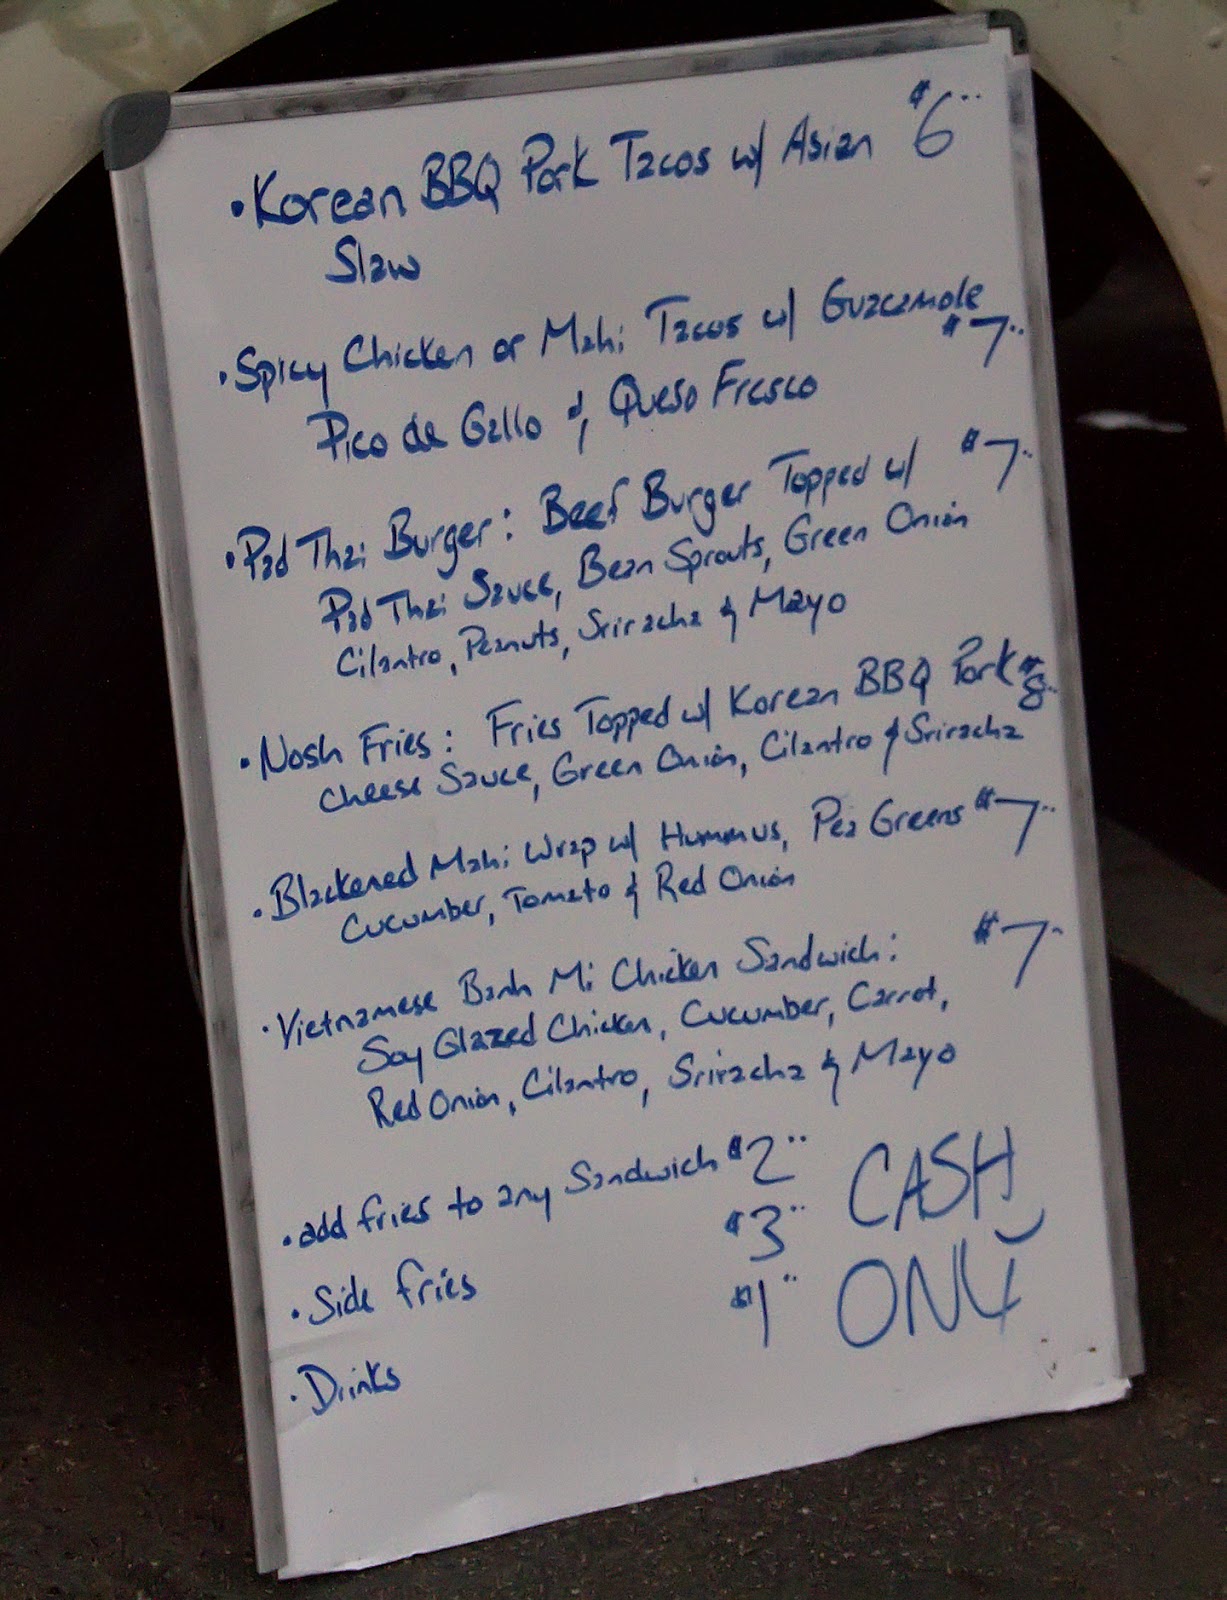 • Korean BBQ Pork Tacos w/ Asian $6..
Slaw
• Spicy Chicken or Mahi Tacos w/ Guacamole
Pico de Gallo & Queso Fresco $7..
• Pad Thai Burger: Beef Burger Topped w/ $7..
Pad Thai Sauce, Bean Sprouts, Green Onion
Cilantro, Peanuts, Sriracha & Mayo
• Nosh Fries: Fries Topped w/ Korean BBQ Pork $8..
Cheese Sauce, Green Onion, Cilantro & Sriracha
• Blackened Mahi Wrap w/ Hummus, Pea Greens $7..
Cucumber, Tomato & Red Onion
• Vietnamese Banh Mi Chicken Sandwich: $7..
Soy Glazed Chicken, Cucumber, Carrot,
Red Onion, Cilantro, Sriracha & Mayo
• add fries to any Sandwich $2..
• Side fries $3..
• Drinks $1..
CASH
ONLY